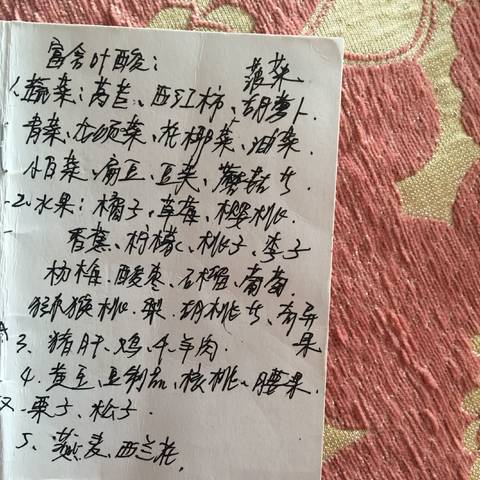 富含叶酸： 菠菜、
1、蔬菜：莴苣、西红柿、胡萝卜、
青菜、龙须菜、花椰菜、油菜、
小白菜、扁豆、豆荚、蘑菇等.
2、水果：橘子、草莓、樱桃、
香蕉、柠檬、桃子、李子
杨梅、酸枣、石榴、葡萄、
猕猴桃、梨、胡桃等、奇异
果
3、猪肝、鸡、牛、羊肉.
4、黄豆、豆制品、核桃、腰果、
栗子、松子.
5、燕麦、西兰花,